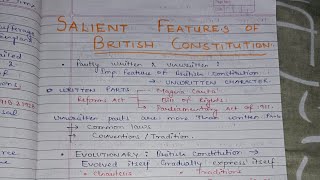 SALIENT FEATURES OF
BRITISH CONSTITUTION
• Partly written & unwritten :
Imp feature of British Constitution
→ UNWRITTEN CHARACTER.
WRITTEN PARTS → Magna Carta
Reforms Act → Bill of Rights
→ Parliamentary Act of 1911.
Unwritten parts are more than written part
→ Common laws
→ Conventions / Tradition.
• EVOLUTIONARY : British Constitution →
Evolved itself gradually express itself
Charters Traditions